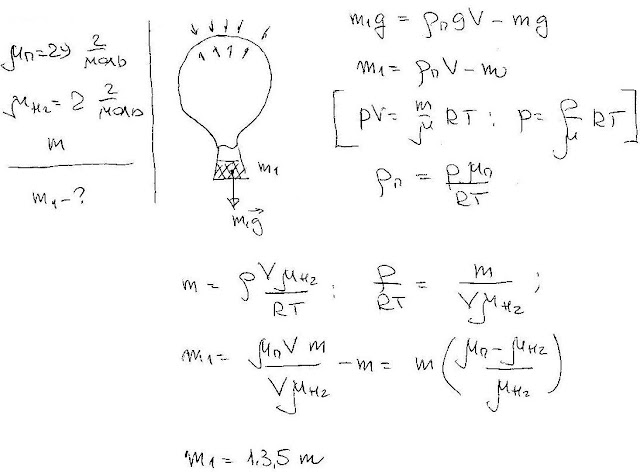 μп=29 г/моль
μH₂=2 г/моль
m
m₁-?
m₁
m₁g⃗
m₁g = ρпgV - mg
m₁ = ρпV - m
[ pV = m/μ RT ; p = ρ/μ RT ]
ρп = p μп / RT
m = p Vμн₂ / RT ; p / RT = m / Vμн₂ ;
m₁ = μпV m / Vμн₂ - m = m ( μп - μн₂ / μн₂ )
m₁ = 13,5 m